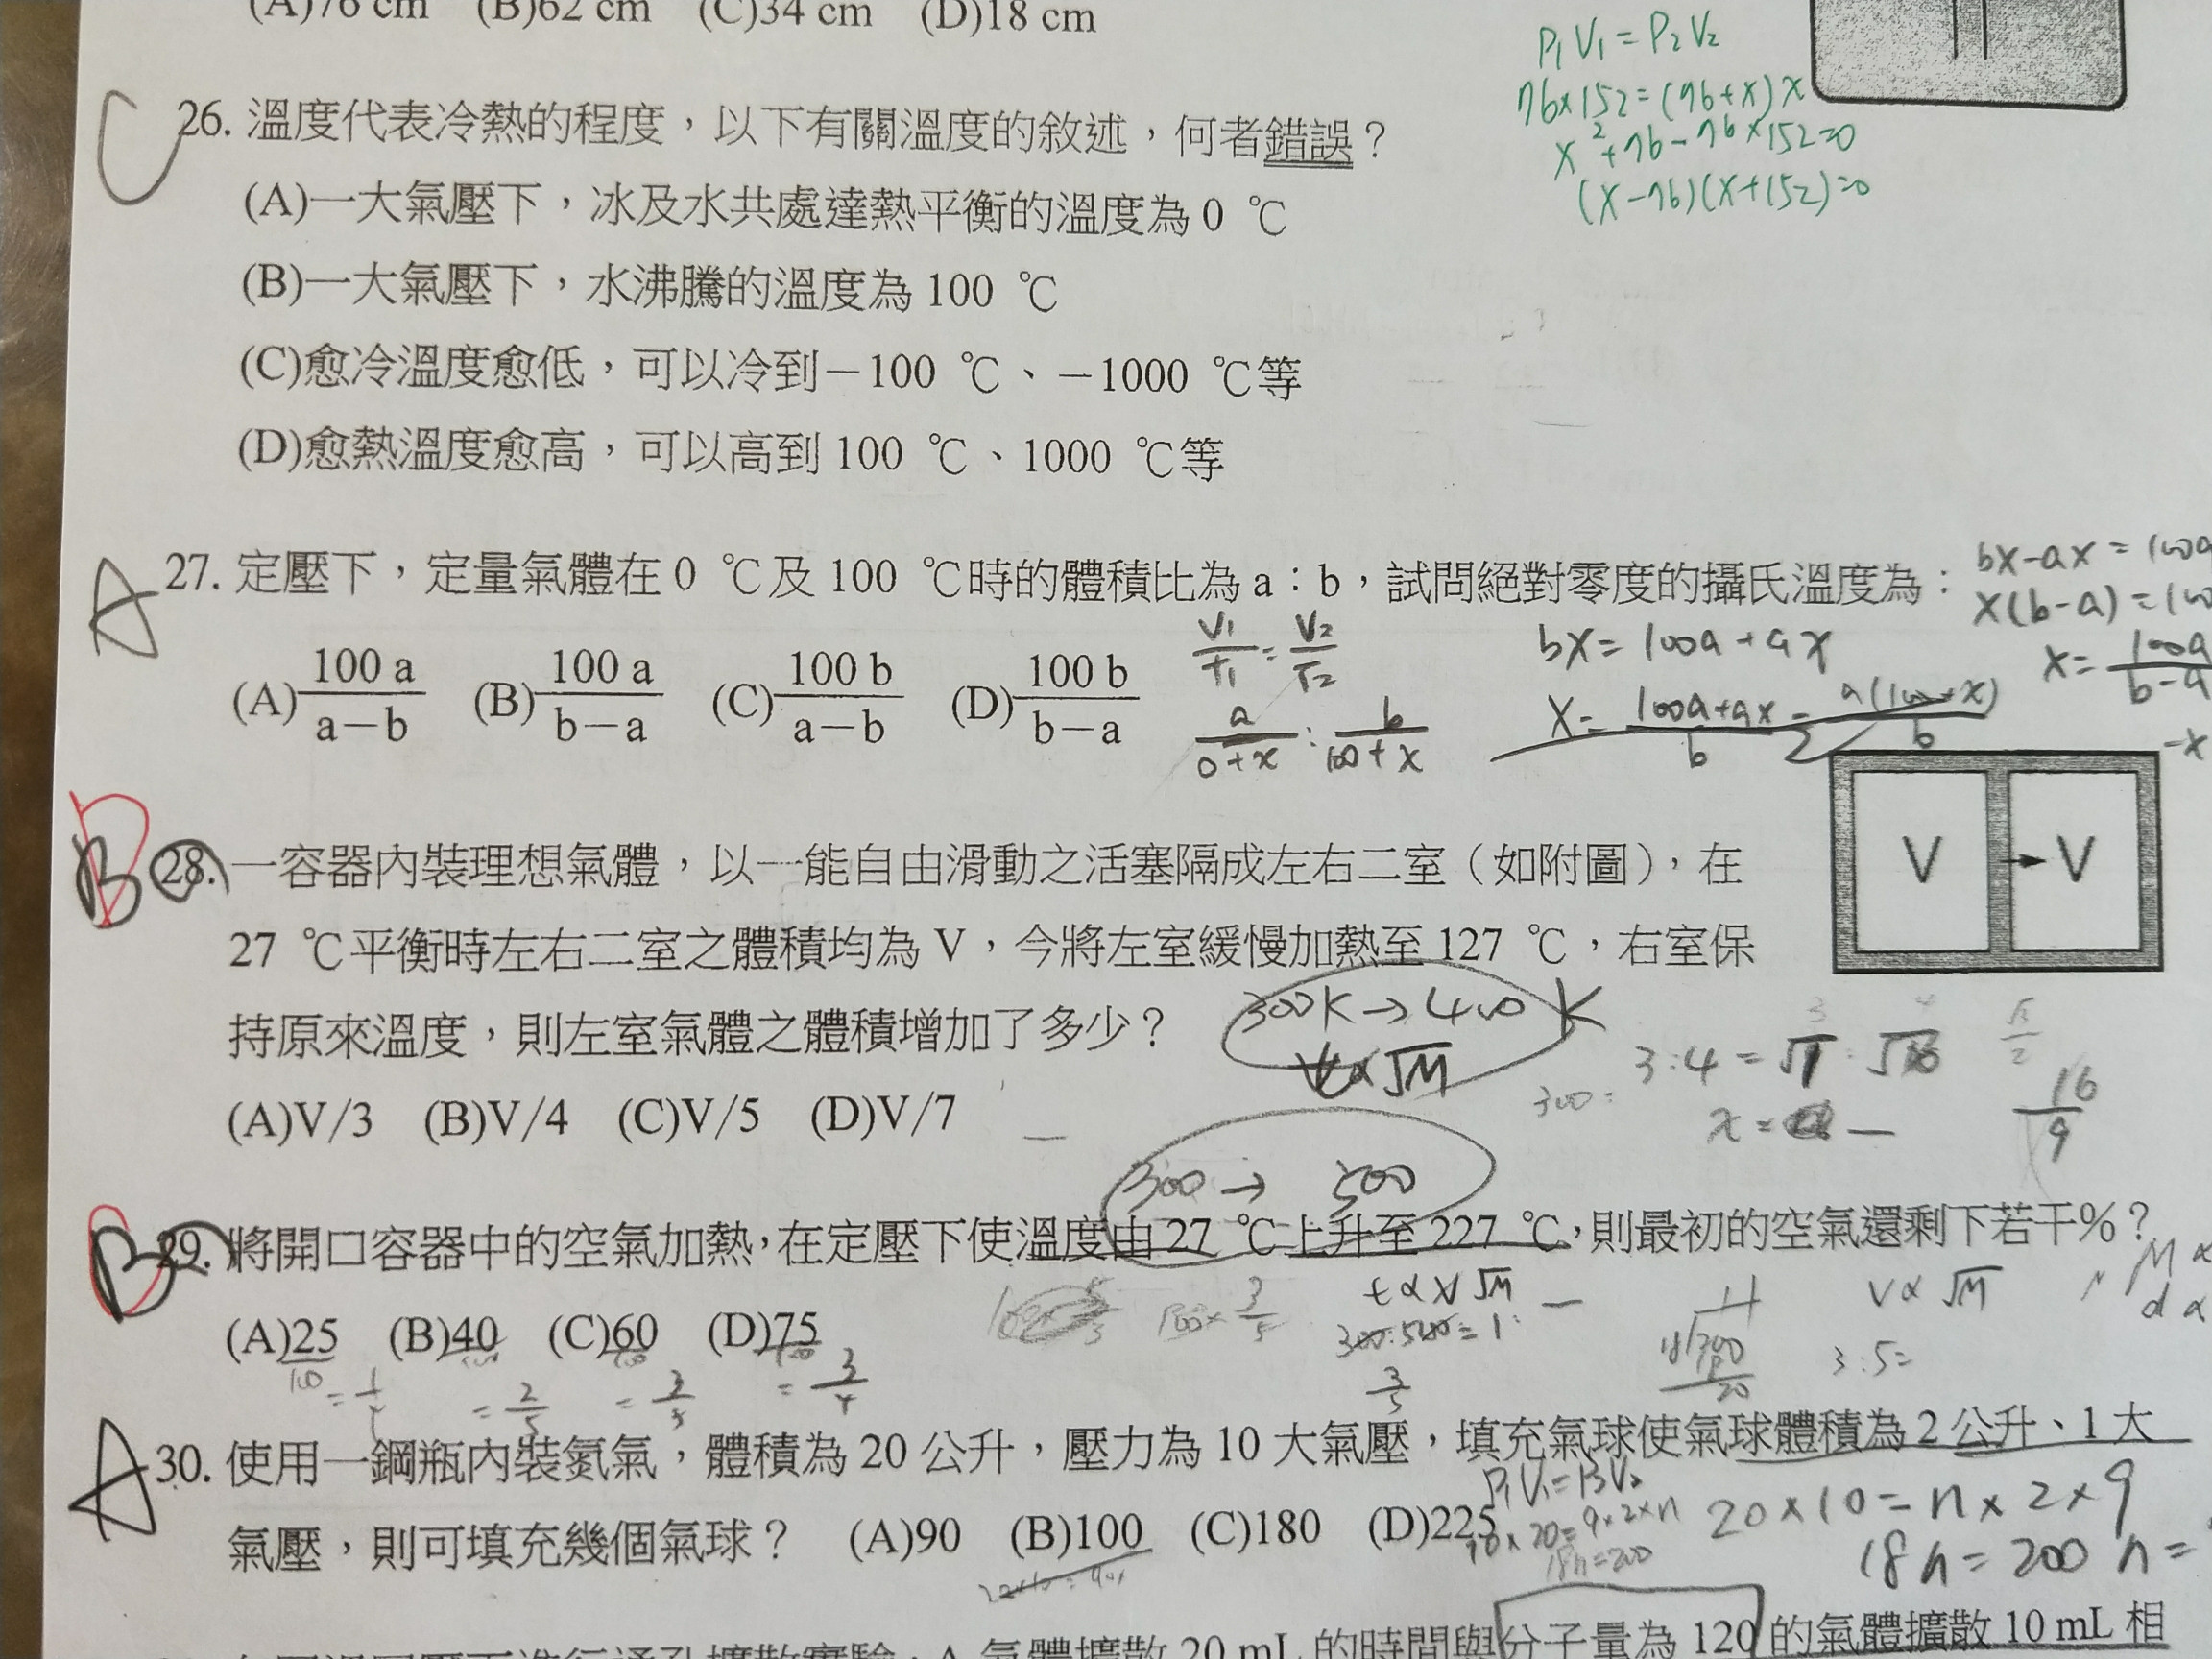 (A)76 cm (B)62 cm (C)34 cm (D)18 cm
P₁V₁=P₂V₂
76×152=(76+x)x
x²+76-76×152=0
(x-76)(x+152)=0
C 26. 溫度代表冷熱的程度，以下有關溫度的敘述，何者錯誤？
(A)一大氣壓下，冰及水共處達熱平衡的溫度為 0 ℃
(B)一大氣壓下，水沸騰的溫度為 100 ℃
(C)愈冷溫度愈低，可以冷到－100 ℃、－1000 ℃等
(D)愈熱溫度愈高，可以高到 100 ℃、1000 ℃等
A 27. 定壓下，定量氣體在 0 ℃及 100 ℃時的體積比為 a：b，試問絕對零度的攝氏溫度為：
(A) 100 a / a－b (B) 100 a / b－a (C) 100 b / a－b (D) 100 b / b－a
V₁/T₁ = V₂/T₂
a/0+x : b/100+x
bx=100a+ax
x= 100a+ax / b = a(100+x) / b
bx-ax=100a
x(b-a)=100
x= 100a / b-a
-x
B 28. 一容器內裝理想氣體，以一能自由滑動之活塞隔成左右二室（如附圖），在
27 ℃平衡時左右二室之體積均為 V，今將左室緩慢加熱至 127 ℃，右室保
持原來溫度，則左室氣體之體積增加了多少？
(A)V/3 (B)V/4 (C)V/5 (D)V/7
V V
300K→400K
∝√M
3:4=
300:
x=
16/9
B 29. 將開口容器中的空氣加熱，在定壓下使溫度由 27 ℃上升至 227 ℃，則最初的空氣還剩下若干％？
300→500
(A)25 (B)40 (C)60 (D)75
100 =
= 2/5
=
= 3/4
100× 3/5
t∝V√M
300:500=1:
3/5
V∝√M
3:5=
M∝
d∝
A 30. 使用一鋼瓶內裝氮氣，體積為 20 公升，壓力為 10 大氣壓，填充氣球使氣球體積為 2 公升、1 大
氣壓，則可填充幾個氣球？ (A)90 (B)100 (C)180 (D)225
P₁V₁=P₂V₂
10×20=9×2×n
18n=200
20×10=n×2×9
18n=200 n=
A 氣體擴散 20 mL 的時間與分子量為 120 的氣體擴散 10 mL 相